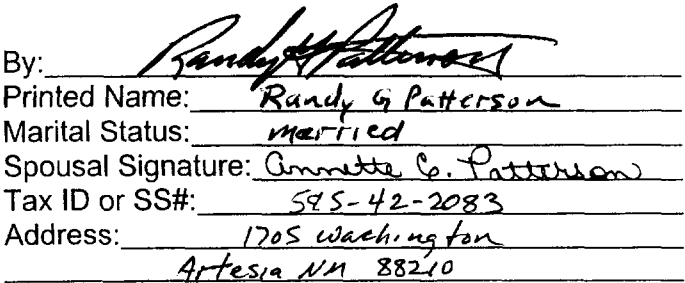 By: Randy G Patterson
Printed Name: Randy G Patterson
Marital Status: married
Spousal Signature: Annette C. Patterson
Tax ID or SS#:
Address: 1705 Washington
Artesia NM 88210